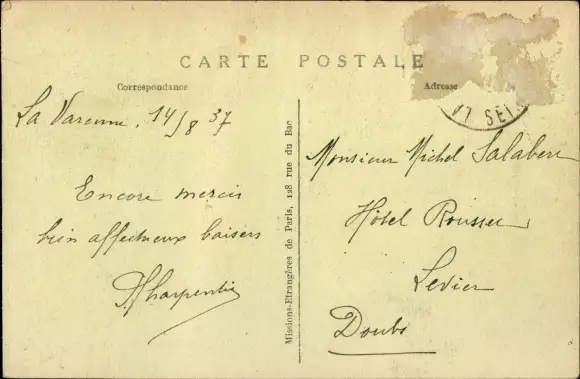 CARTE POSTALE
Correspondance
Adresse
La Varenne, 14/8 37
Encore mercis
bien affectueux baisers
Charpentier
Missions-Etrangères de Paris, 128 rue du Bac
LA SEI
Monsieur Michel Salabere
Hôtel Rousseu
Levier
Doubs